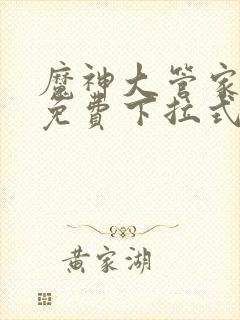 魔神大管家
免費下拉式
黃家湖